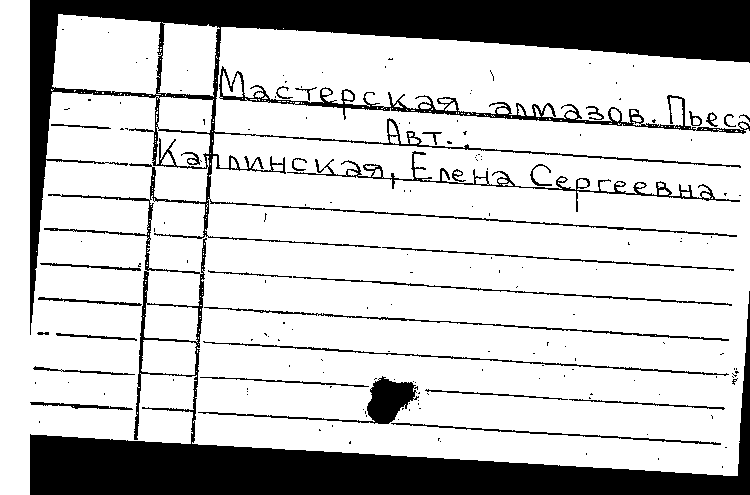 Мастерская алмазов. Пьеса
Авт.:
Каплинская, Елена Сергеевна.